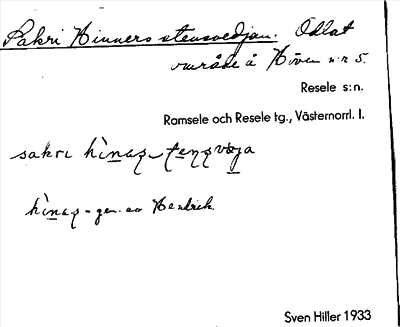 Sakri Hinners stensvedjan. Odlat
område å Höven n:r 5.
Resele s:n.
Ramsele och Resele tg., Västernorrl. l.
sakri
hìnaʂ - gen. av Hendrick.
Sven Hiller 1933